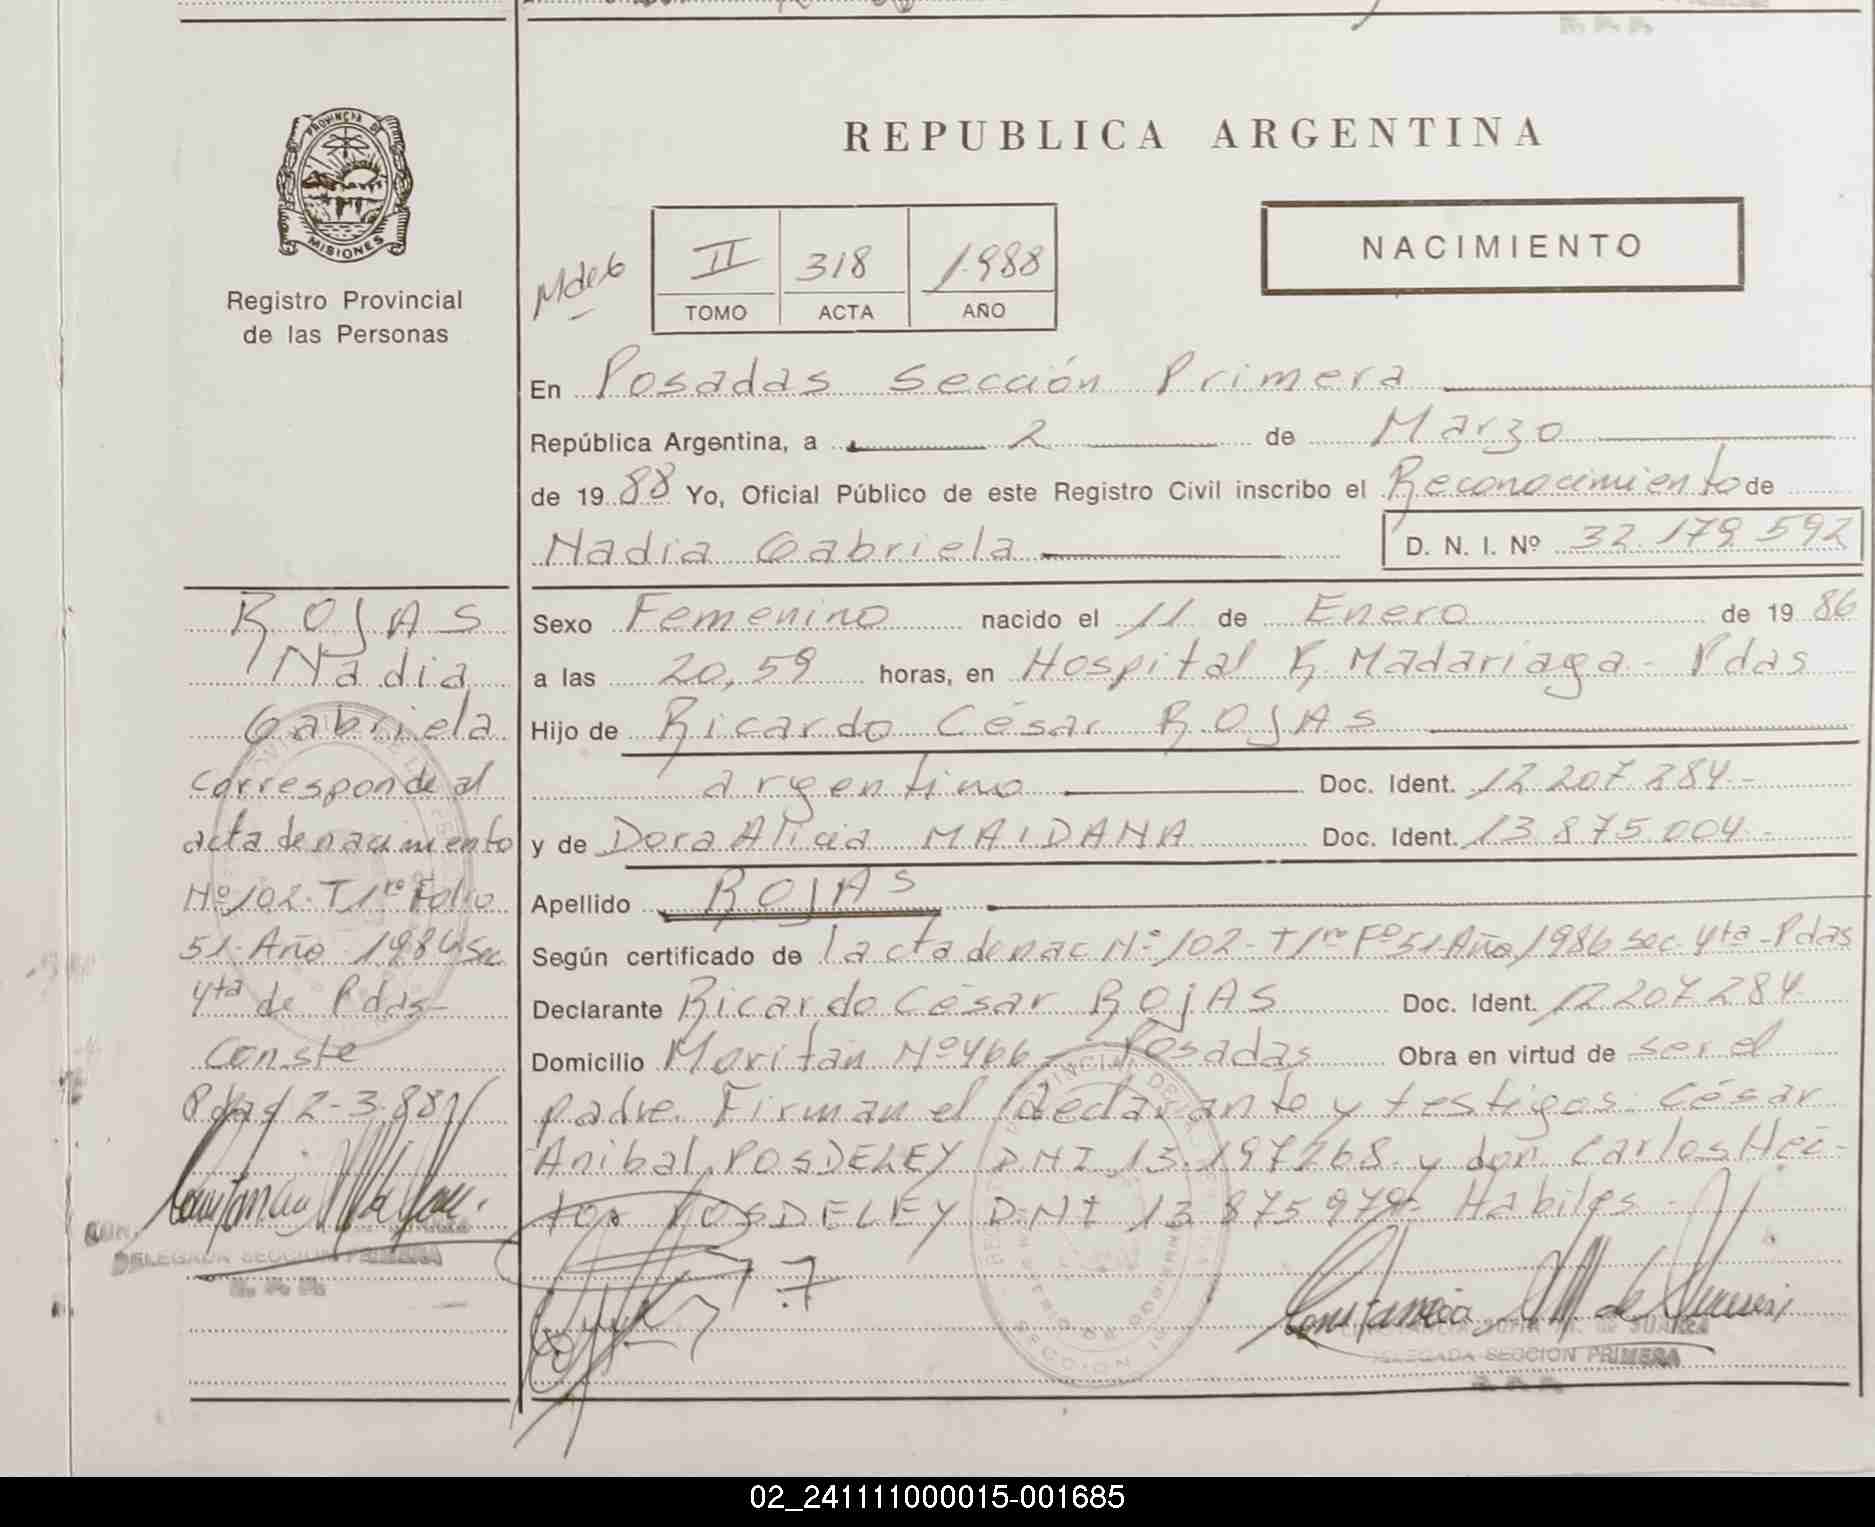 REPUBLICA ARGENTINA
PROVINCIA DE
MISIONES
Registro Provincial
de las Personas
NACIMIENTO
II 318 1.988
TOMO ACTA AÑO
En Posadas Sección Primera
República Argentina, a 2 de Marzo
de 19 88 Yo, Oficial Público de este Registro Civil inscribo el Reconocimiento de
Nadia Gabriela D. N. I. Nº 32.179.592
Sexo Femenino nacido el 11 de Enero de 19 86
a las 20,59 horas, en Hospital R. Madariaga - Pdas
Hijo de Ricardo César ROJAS
argentino Doc. Ident. 12.207.284.-
y de Dora Alicia MAIDANA Doc. Ident. 13.875.004.-
Apellido ROJAS
Según certificado de l acta de nac Nº 102 - T 1ro Fº 51 Año 1986 sec 4ta - Pdas
Declarante Ricardo César ROJAS Doc. Ident. 12.207.284
Domicilio Moritan Nº 466 - Posadas Obra en virtud de ser el
padre. Firman el declarante y testigos: César
Anibal POSDELEY DNI 13.197.268 y don Carlos Héc-
tor POSDELEY DNI 13.875.979 - Habiles -
ROJAS
Nadia
Gabriela
corresponde al
acta de nacimiento
Nº 102 - T 1ro Folio
51 - Año 1986 sec
4ta de Pdas -
Conste
Pdas 2-3-88
DELEGADA SECCION PRIMERA
DE SUAREZ
DELEGADA SECCION PRIMERA
02_241111000015-001685